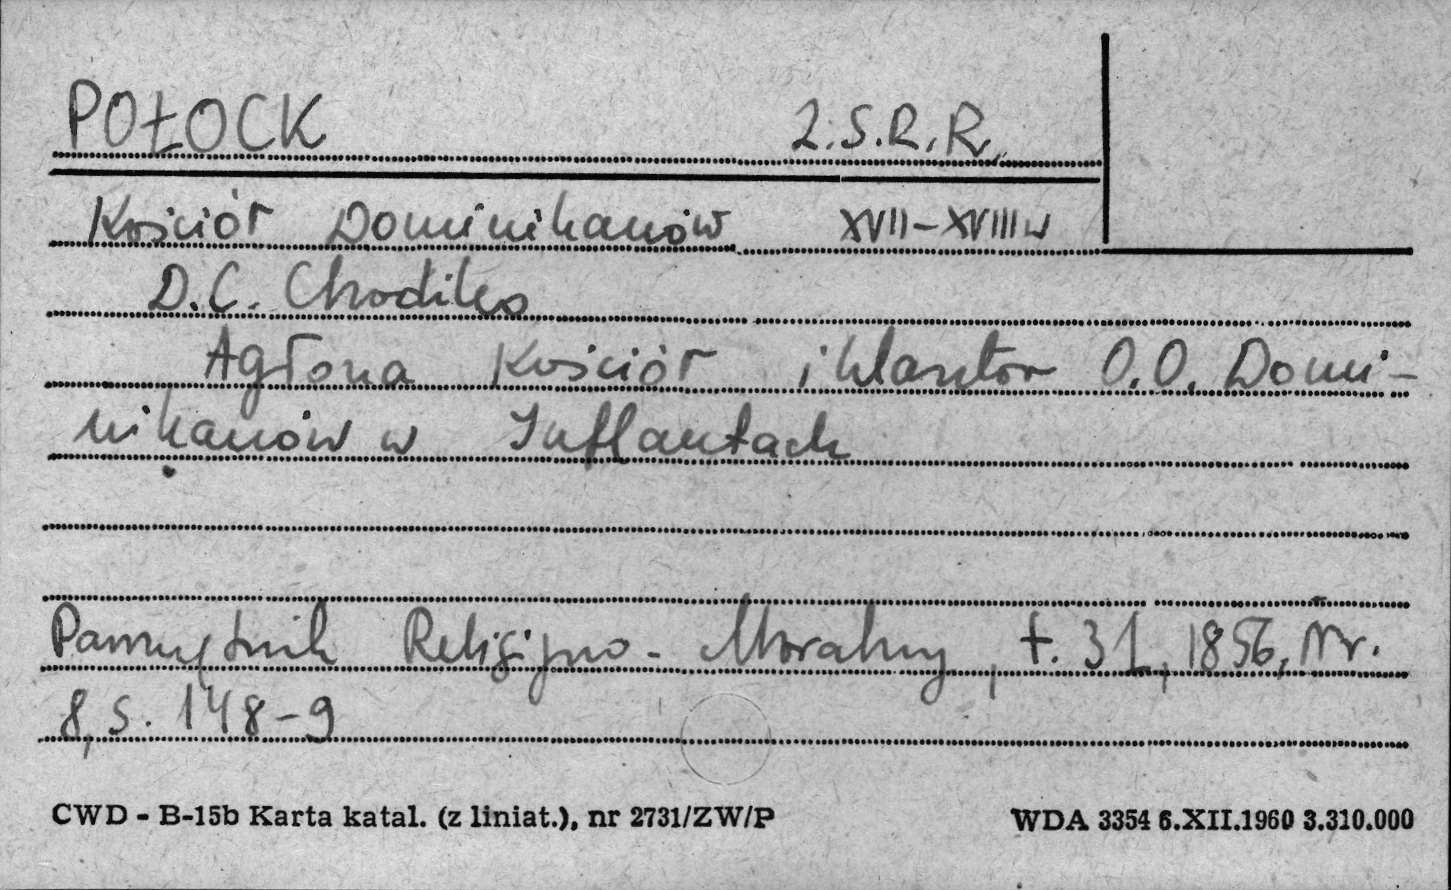 POŁOCK Z.S.R.R.
Kościół Dominikanów XVII–XVIII w
D.C. Chodźko
Agłona Kościół i klasztor O.O. Domi-
nikanów w Inflantach
Pamiętnik Religijno-Moralny, t. 31, 1856, Nr.
8, s. 148–9
CWD - B-15b Karta katal. (z liniat.), nr 2731/ZW/P WDA 3354 6.XII.1960 3.310.000